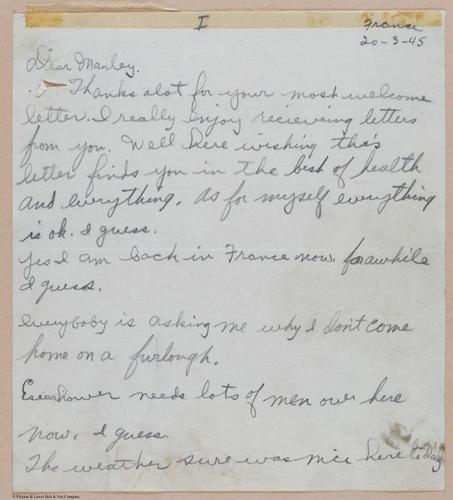 I
France
20-3-45
Dear Manley.
Thanks alot for your most welcome
letter. I really enjoy recieveing letters
from you. Well here wishing this
letter finds you in the best of health
and everything. As for myself everything
is ok. I guess.
Yes I am back in France now for awhile
I guess.
Everyboby is asking me why I don't come
home on a furlough.
Eisenhower needs lots of men over here
now. I guess.
The weather sure was nice here today